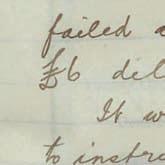 failed a
£6 del
It w
to instr